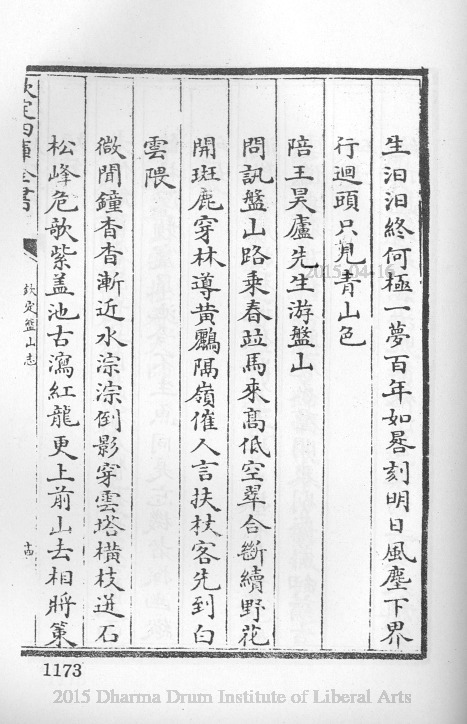 生汨汨終何極一夢百年如晷刻明日風塵下界
行迴頭只見青山色
陪王昊廬先生游盤山
問訊盤山路乘春並馬來髙低空翠合斷續野花
開斑鹿穿林導黄鸝隔嶺催人言扶杖客先到白
雲隈
微聞鐘杳杳漸近水淙淙倒影穿雲塔橫枝迸石
松峰危欹紫盖池古瀉紅龍更上前山去相將策
欽定四庫全書
欽定盤山志
十四
1173
2015-04-16
2015 Dharma Drum Institute of Liberal Arts